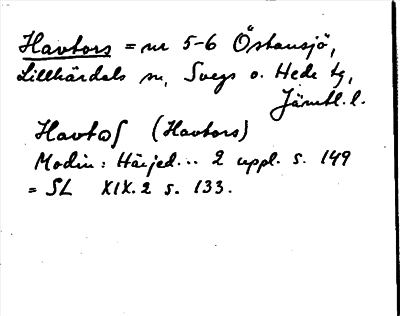 Havtors = nr 5-6 Östansjö,
Lillhärdals sn, Svegs o. Hede tg,
Jämtl. l.
Havtoſ (Havtors)
Modin: Härjed... 2 uppl. s. 149
= SL XIX.2 s. 133.